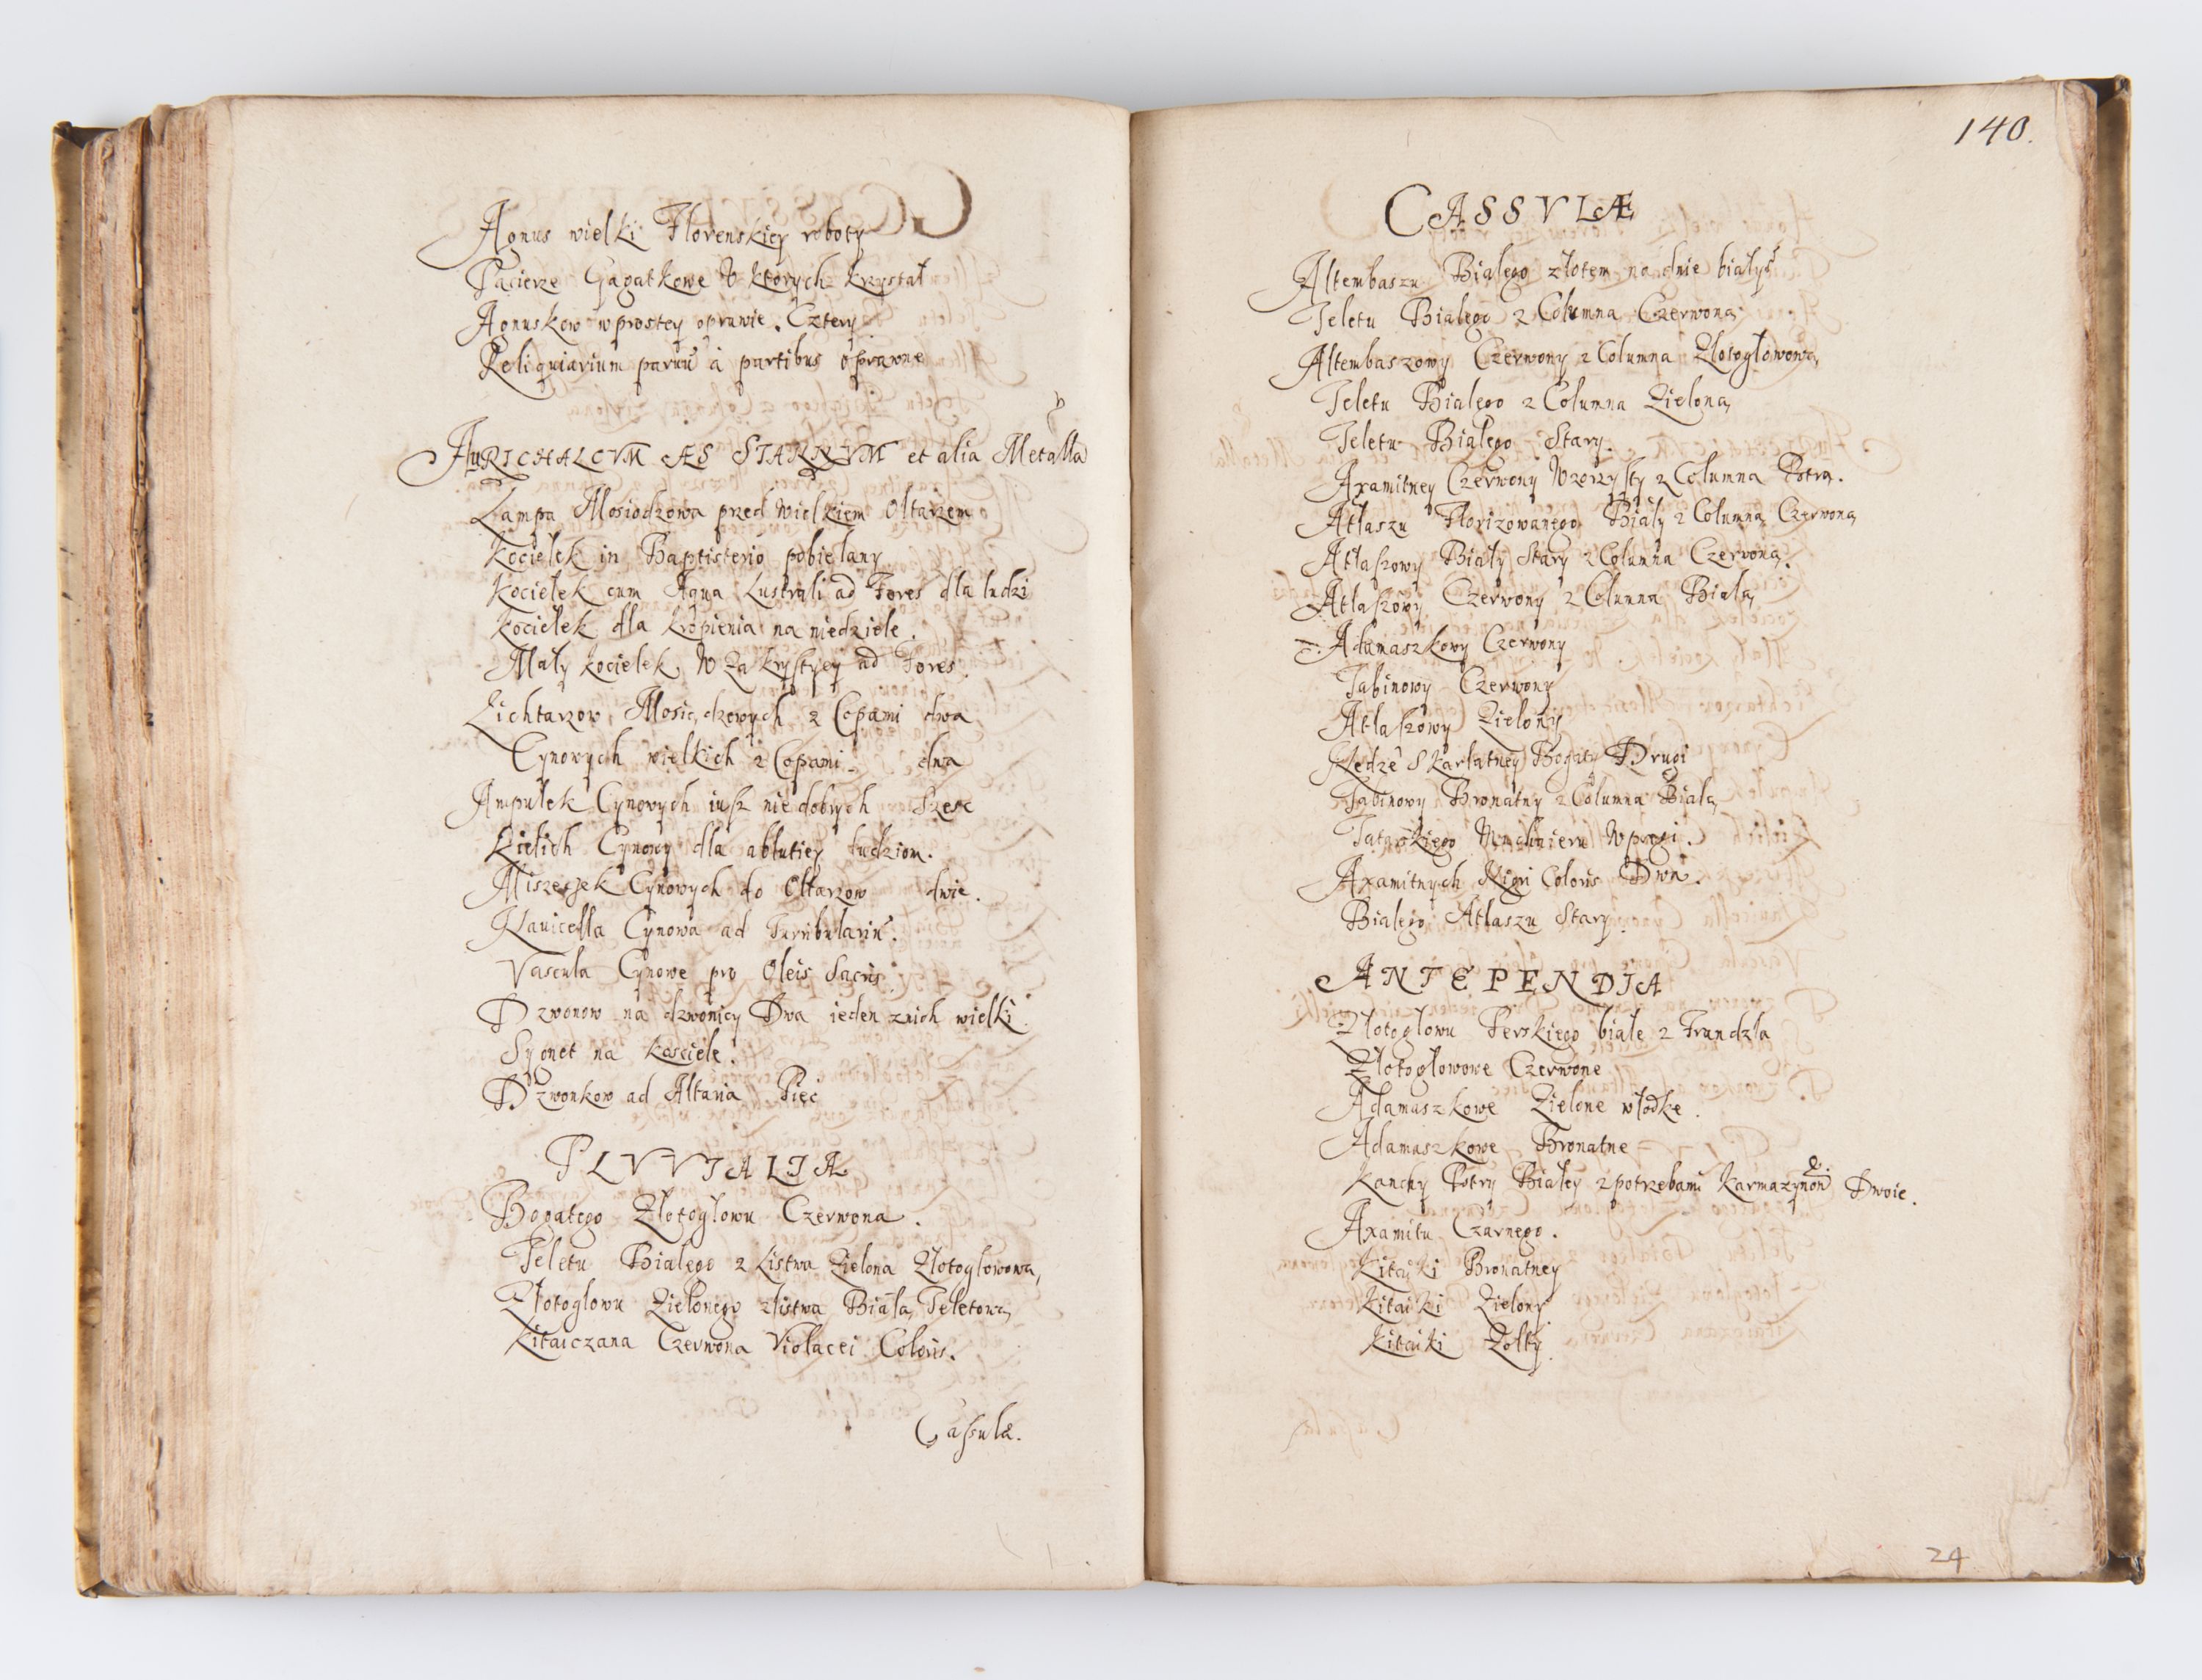 Agnus wielki Florenskiey roboty
Pacierze Gagatkowe W ktorych krzyształ
Agnuskow w prostey oprawie. Cztery
Reliquiarium parvū à partibus oprawne
AuRICHALCVM ÆS STANNVM et alia Metalla
Lampa Mosiodzowa przed Wielkiem Ołtarzem
Kociełek in Baptisterio pobielany
Kociełek cum Aqua Lustrali ad Fores dla ludzi
Kociełek dla kropienia na niedziele.
Mały kociełek W Zakrystyey ad Fores.
Lichtarzow Mosiądzowych z Copami dwa
Cynowych wielkich z Copami dwa
Ampułek Cynowych iusz niedobrych Szesc
Kielich Cynowy dla ablutiey ludziom.
Miszeczek Cynowych do Ołtarzow dwie.
Nauicella Cynowa ad Turribulariū.
Vascula Cynowe pro Oleis Sacris
Dzwonow na dzwonicy Dwa ieden znich wielki.
Sygnet na kosciele.
Dzwonkow ad Altaria Pięć
PLVVIALIA
Bogatego Złotogłowu Czerwona.
Teletu Białego z Listwa Zielona Złotogłowową
Złotogłowu Zielonego zlistwa Białą Teletową
Kitaiczana Czerwona Violacei Coloris.
Cassulæ.
140.
CASSVLÆ
Altembaszu Białego złotem na dnie białym
Teletu Białego z Columną Czerwoną
Altembaszowy Czerwony z Columna Złotogłowową
Teletu Białego z Columna Zieloną
Teletu Białego Stary.
Axamitney Czerwony Wzorzysty z Columna Pstrą.
Atłaszu Florizowanego Biały z Columną Czerwoną
Atłaszowy Biały Stary z Columna Czerwoną.
Atłaszowy Czerwony z Columna Białą
Adamaszkowy Czerwony
Tabinowy Czerwony
Atłaszowy Zielony
Skarłatney Bogaty Drugi
Tabinowy Bronatny z Columna Białą
Tatarskiego Muchaieru W pregi.
Axamitnych Nigri Coloris Dwa.
Białego Atłaszu Stary.
ANTEPENDIA
Złotogłowu Perskiego białe z Frandzla
Złotogłowowe Czerwone
Adamaszkowe Zielone włodke.
Adamaszkowe Bronatne
Kanchy Pstry Białey zpotrzebami Karmazynoũ Dwoie.
Axamitu Czarnego.
Kitaiki Bronatney
Kitaiki Zielony
Kitaiki Żołty.
24